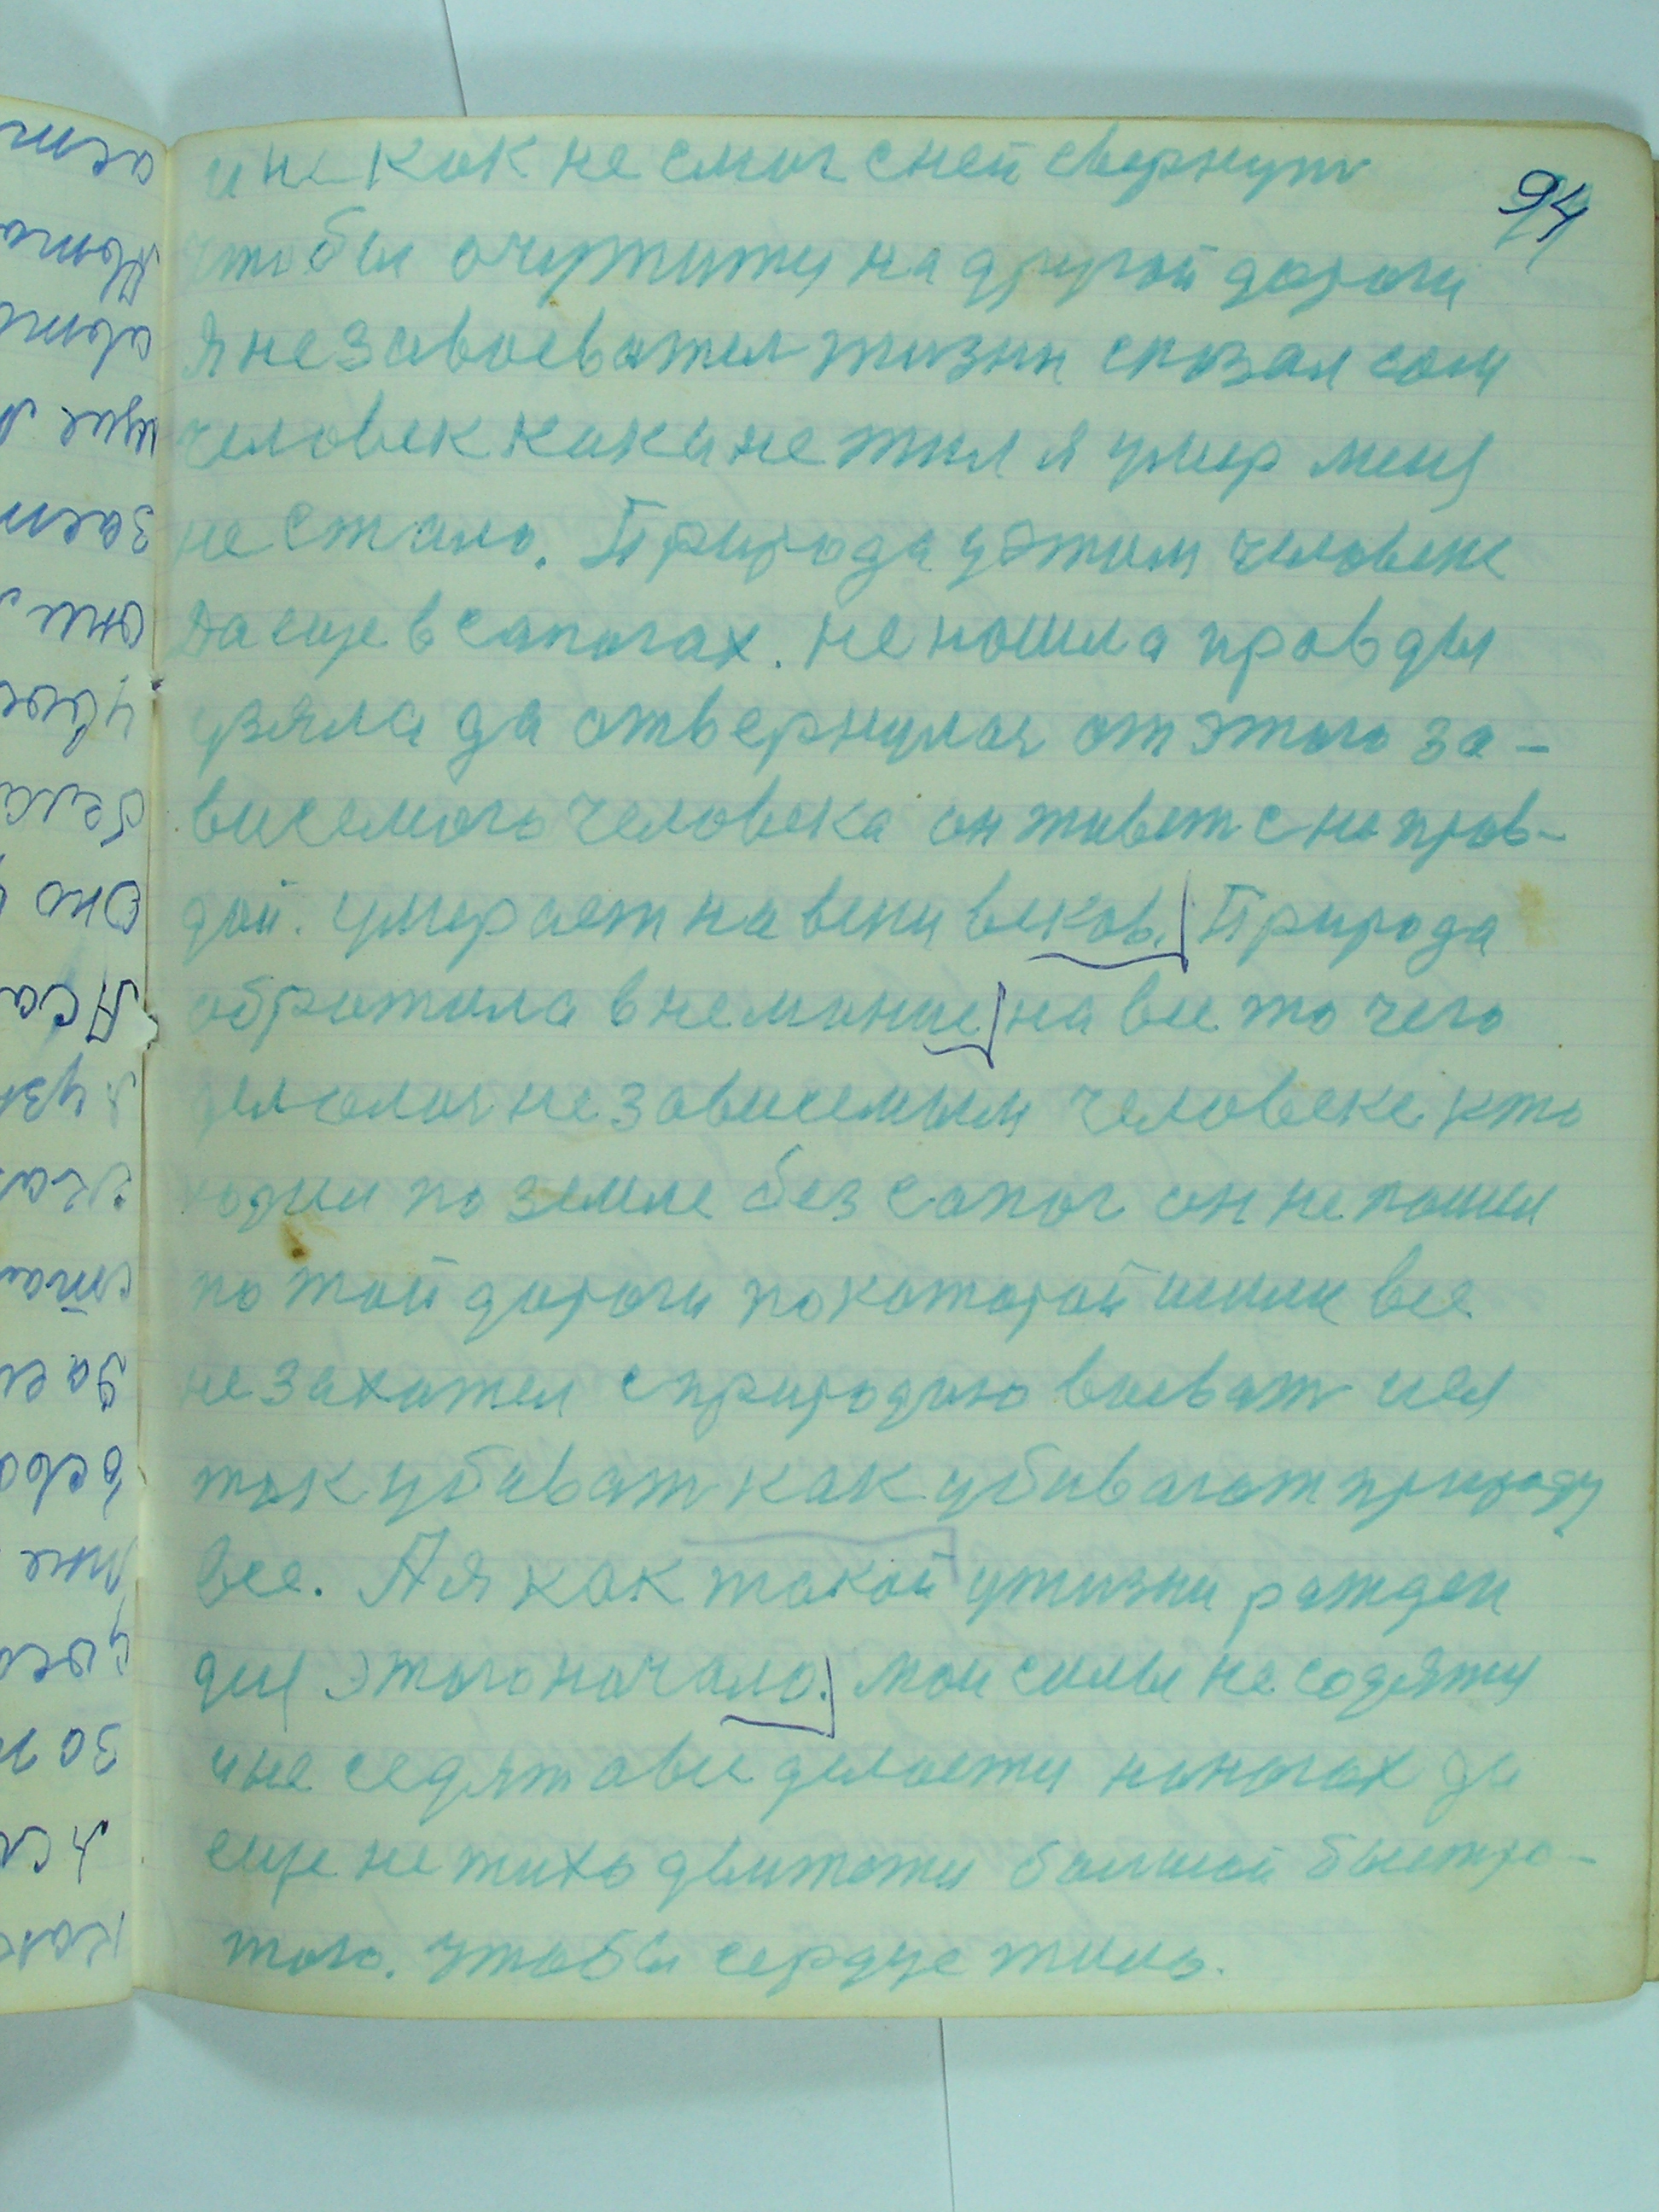 94
и не как не смог с ней свернуть
чтобы очутитця на другой дороги
Я незавоеватель жизни сказал сам
человек как и не жил я умер меня
не стало. Природа у этим человеке
да еще в сапогах. не нашла правды
узяла да отвернулась от этого за-
висемого человека он живет с неправ-
дой. умерает на веки веков. Природа
обратила внемание на все то чего
делалось независемым человеке кто
ходил по земле без сапог он не пошел
по той дороги по которой шли все
не захотел с природою воевать и ея
так убивать как убивают природу
все. А я как такой у жизни ражден
для этого начало. мои силы не содятця
и не седят а все делаетця на ногах да
еще не тихо движетця большой быстро-
тою. чтобы сердце жило.